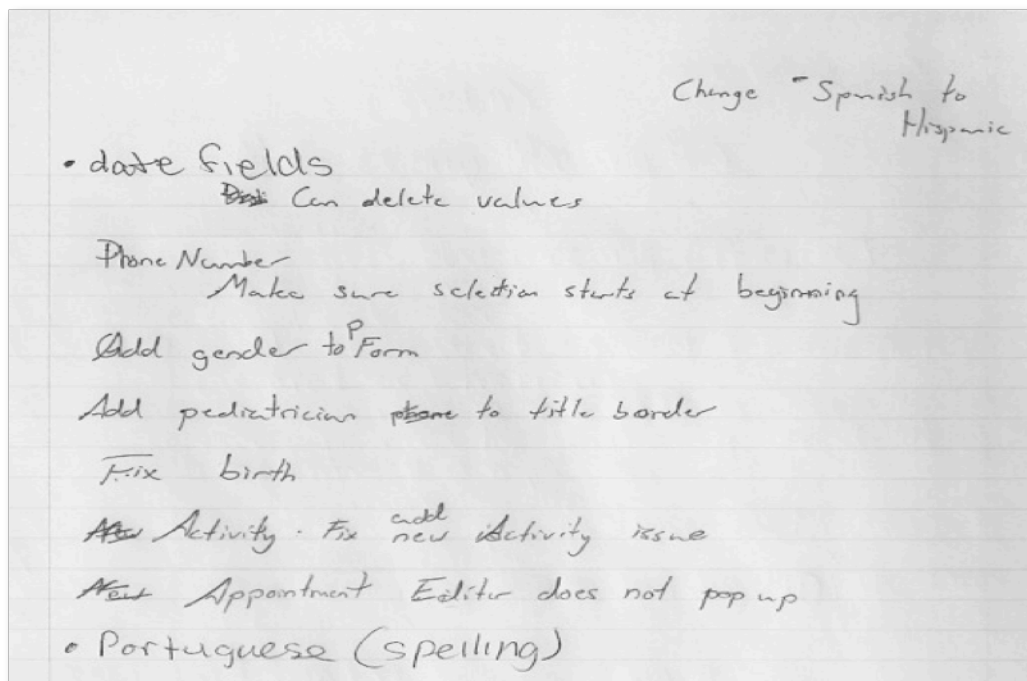 Change - Spanish to
Hispanic
• date fields
Can delete values
Phone Number
Make sure selection starts at beginning
Add gender to P Form
Add pediatrician phone to title border
Fix birth
New Activity · Fix add new Activity issue
New Appointment Editor does not pop up
• Portuguese (spelling)